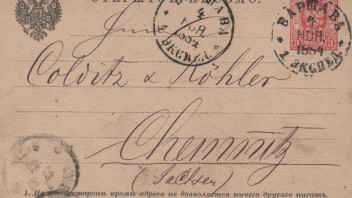 ВАРШАВА
4
НОЯ.
1884
ЭКСПЕД.
ВАРШАВА
4
НОЯ.
1884
ЭКСПЕД.
Colditz & Köhler
Chemnitz
(Sachsen)
1. На стороне кромѣ адреса не дозволяется ничего другаго писать.